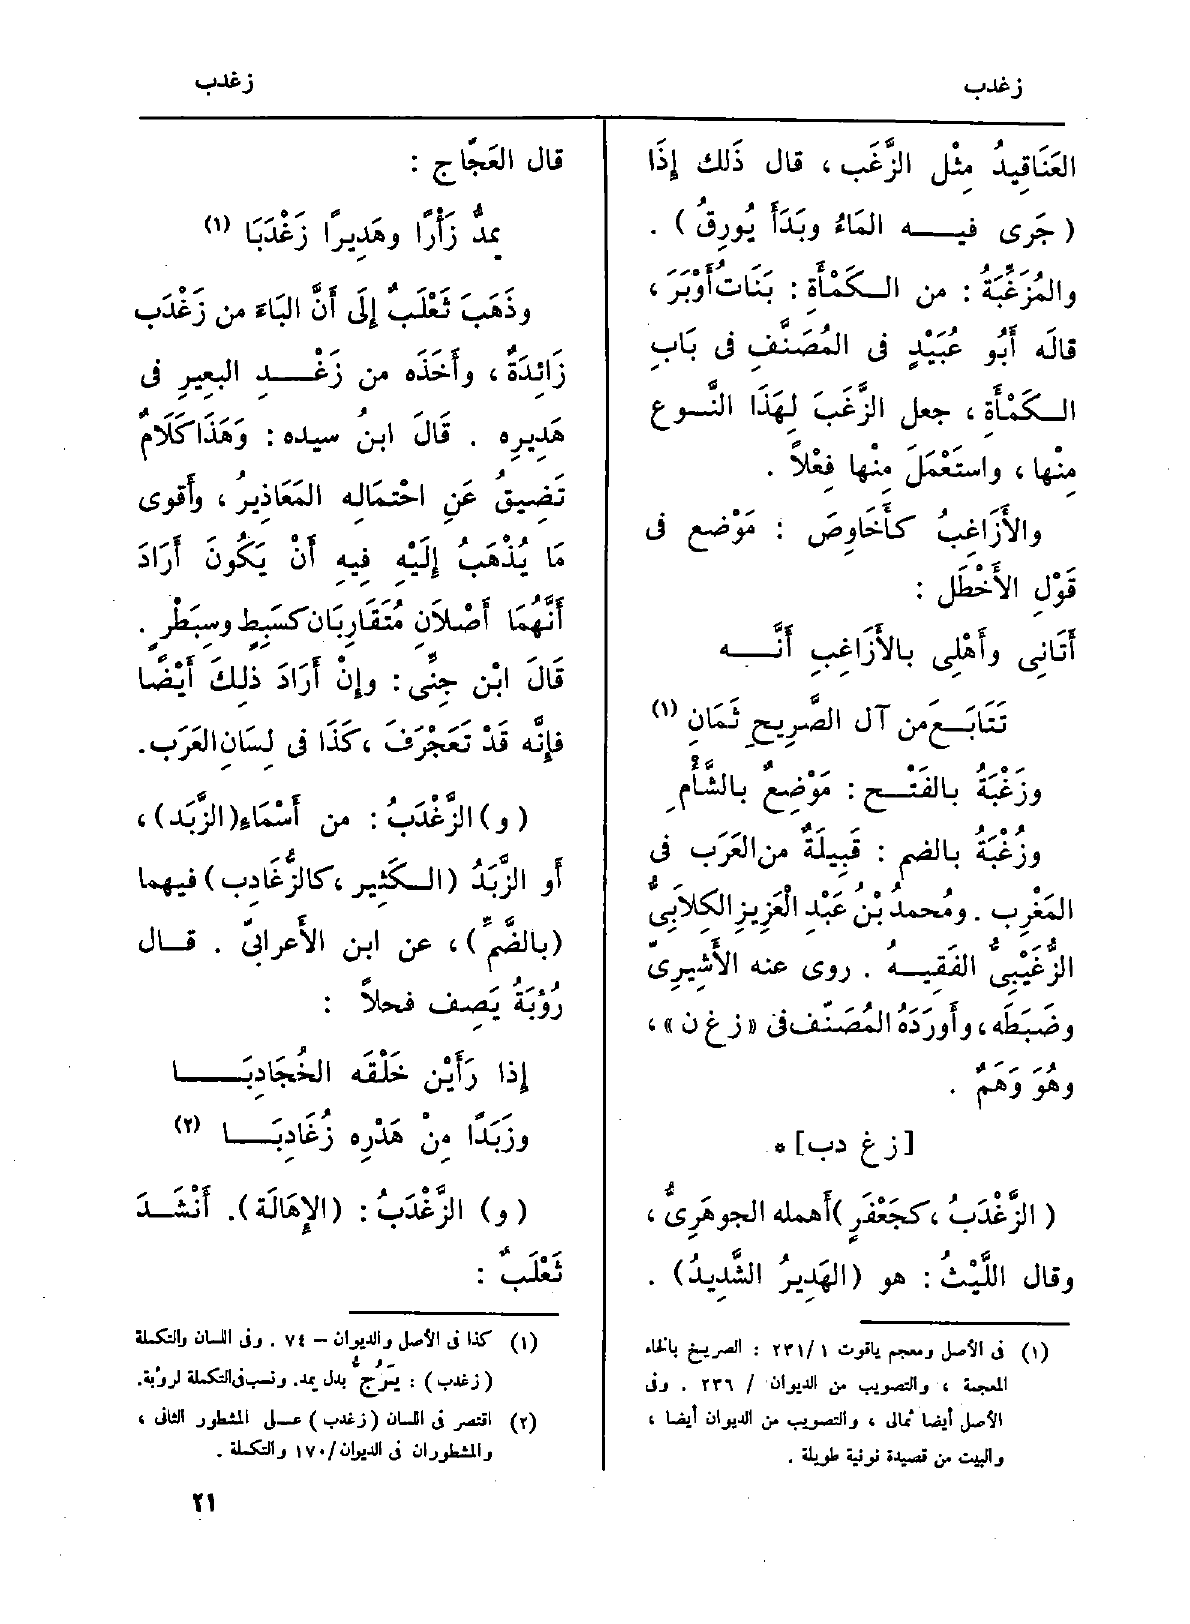 زغدب
زغدب
العَنَاقِيدُ مِثْل الزَّغَب ، قال ذَلك إِذَا
( جَرى فيـــه المَاءُ وبَدَأَ يُورِقُ ) .
والمُزَغِّبَةُ : من الـكَمْأَةِ : بَنَاتُ أَوْبَرَ ،
قالَه أَبُو عُبَيْدٍ فى المُصَنَّفِ فى بَابِ
الـكَمْأَةِ ، جعل الزَّغَبَ لِهَذَا النَّـوع
مِنْها ، واستَعْمَلَ مِنْها فِعْلاً .
والأَزَاغِبُ كأَخَاوِصَ : مَوْضع فى
قَوْلِ الأَخْطَل :
أَتَانِى وأَهْلِى بالأَزَاغِبِ أَنَّـــه
تَتَابَـعَ من آل الصَّرِيحِ ثَمَانِ (١)
وزَغْبَةُ بالفَتْـــح : مَوْضِعٌ بالشَّأْمِ
وزُغْبَةُ بالضم : قَبِيلَةٌ من العَرَب فى
المَغْرِب . ومُحمدُ بْنُ عَبْدِ الْعَزِيزِ الكِلاَبِىُّ
الزُّغَيْبِىُّ الفَقِيـــهُ . روى عنه الأَشِيرِىّ
وضَبَطَه، وأَورَدَهُ المُصَنّف فى « زغ ن » ،
وهُوَ وَهَمٌ .
[ ز غ دب ] *
( الزَّغْدَبُ ، كجَعْفَرٍ ) أَهمله الجوهَرِىُّ ،
وقال اللَّيْثُ : هو (الهَدِيرُ الشَّدِيدُ) .
(١) فى الأصل ومعجم ياقوت ٢٣١/١ : الصريخ بالخاء
المعجمة ، والتصويب من الديوان / ٢٣٦ . وفى
الأصل أيضا ثمالى ، والتصويب من الديوان أيضا ،
والبيت من قصيدة نونية طويلة .
قال العَجَّاج :
يمدُّ زَأْرًا وهَدِيرًا زَغْدَبَا (١)
وذَهَبَ ثَعْلَبٌ إِلَى أَنَّ البَاءَ من زَغْدَب
زَائدَةٌ ، وأَخَذَه من زَغْـــدِ البعِيرِ فى
هَدِيرِه . قَالَ ابنُ سيده : وَهَذَا كَلَامٌ
تَضِيقُ عَنِ احْتمالِه المَعَاذِيرُ ، وأَقوى
مَا يُذْهَبُ إِلَيْهِ فِيهِ أَنْ يَكُونَ أَرَادَ
أَنَّهُمَا أَصْلاَنِ مُتَقَارِبَان كسَبِطٍ وسِبَطْرٍ .
قَالَ ابْن جِنِّى : وإِنْ أَرَادَ ذلِكَ أَيْضًا
فإِنَّه قَدْ تَعَجْرَفَ ، كَذَا فى لِسَانِ العَرَب.
( و ) الزَّغْدَبُ : من أَسْمَاءِ (الزَّبَد ) ،
أَو الزَّبَدُ (الـكَثِير ، كالزُّغَادِب ) فيهما
(بالضَّمِّ ) ، عن ابن الأَعرابىّ . قــال
رُؤْبَةُ يَصِف فحلاً :
إِذا رَأَيْن خَلْقَه الخُجَادِبَـــا
وزَبَدًا مِنْ هَدْرِه زُغَادِبَـــا (٢)
( و ) الزَّغْدَبُ : (الإِهَالَة ). أَنْشَـــدَ
ثَعْلَبٌ :
(١) كذا فى الأصل والديوان – ٧٤ . وفى اللسان والتكملة
(زغدب) : يَرُجُّ بدل يمد. ونسب فى التكملة لرؤبة.
(٢) اقتصر فى اللسان (زغدب) عـلى المشطور الثانى ،
والمشطوران فى الديوان/١٧٠ والتكملة .
٢١